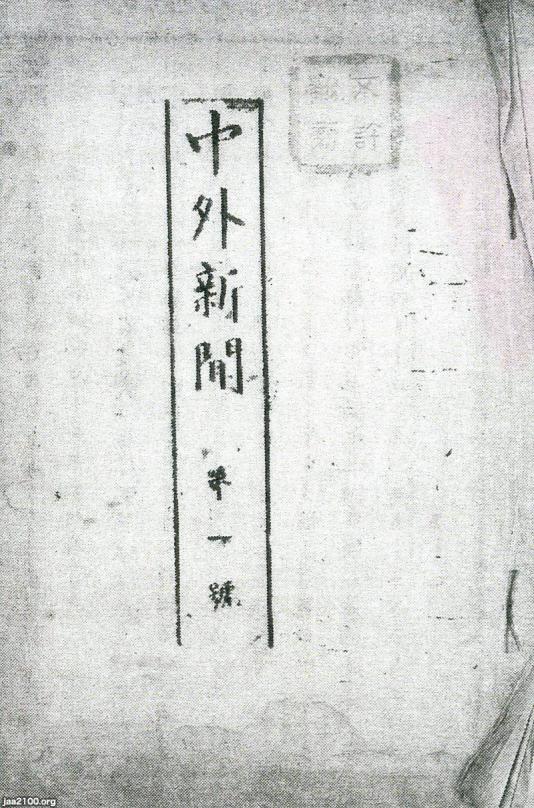 不許
中外新聞 第一號
jaa2100.org